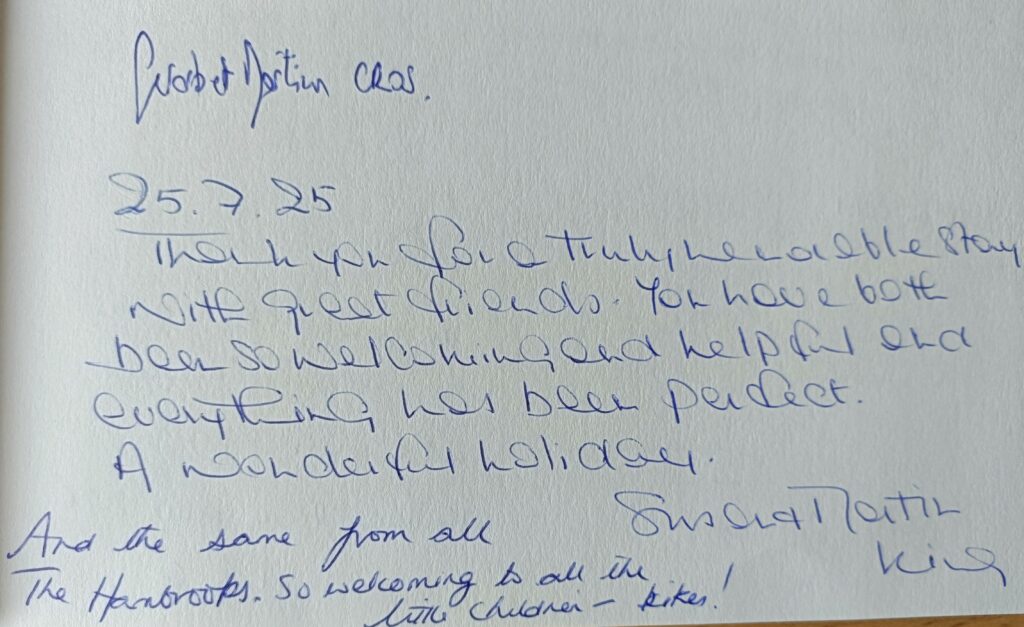 Martin
25.7.25
Thank you for a truly memorable stay
with great friends. You have both
been so welcoming and helpful and
everything has been perfect.
A wonderful holiday.
Susan & Martin
King
And the same from all
The Hambrooks. So welcoming to all the
little children - bikes!